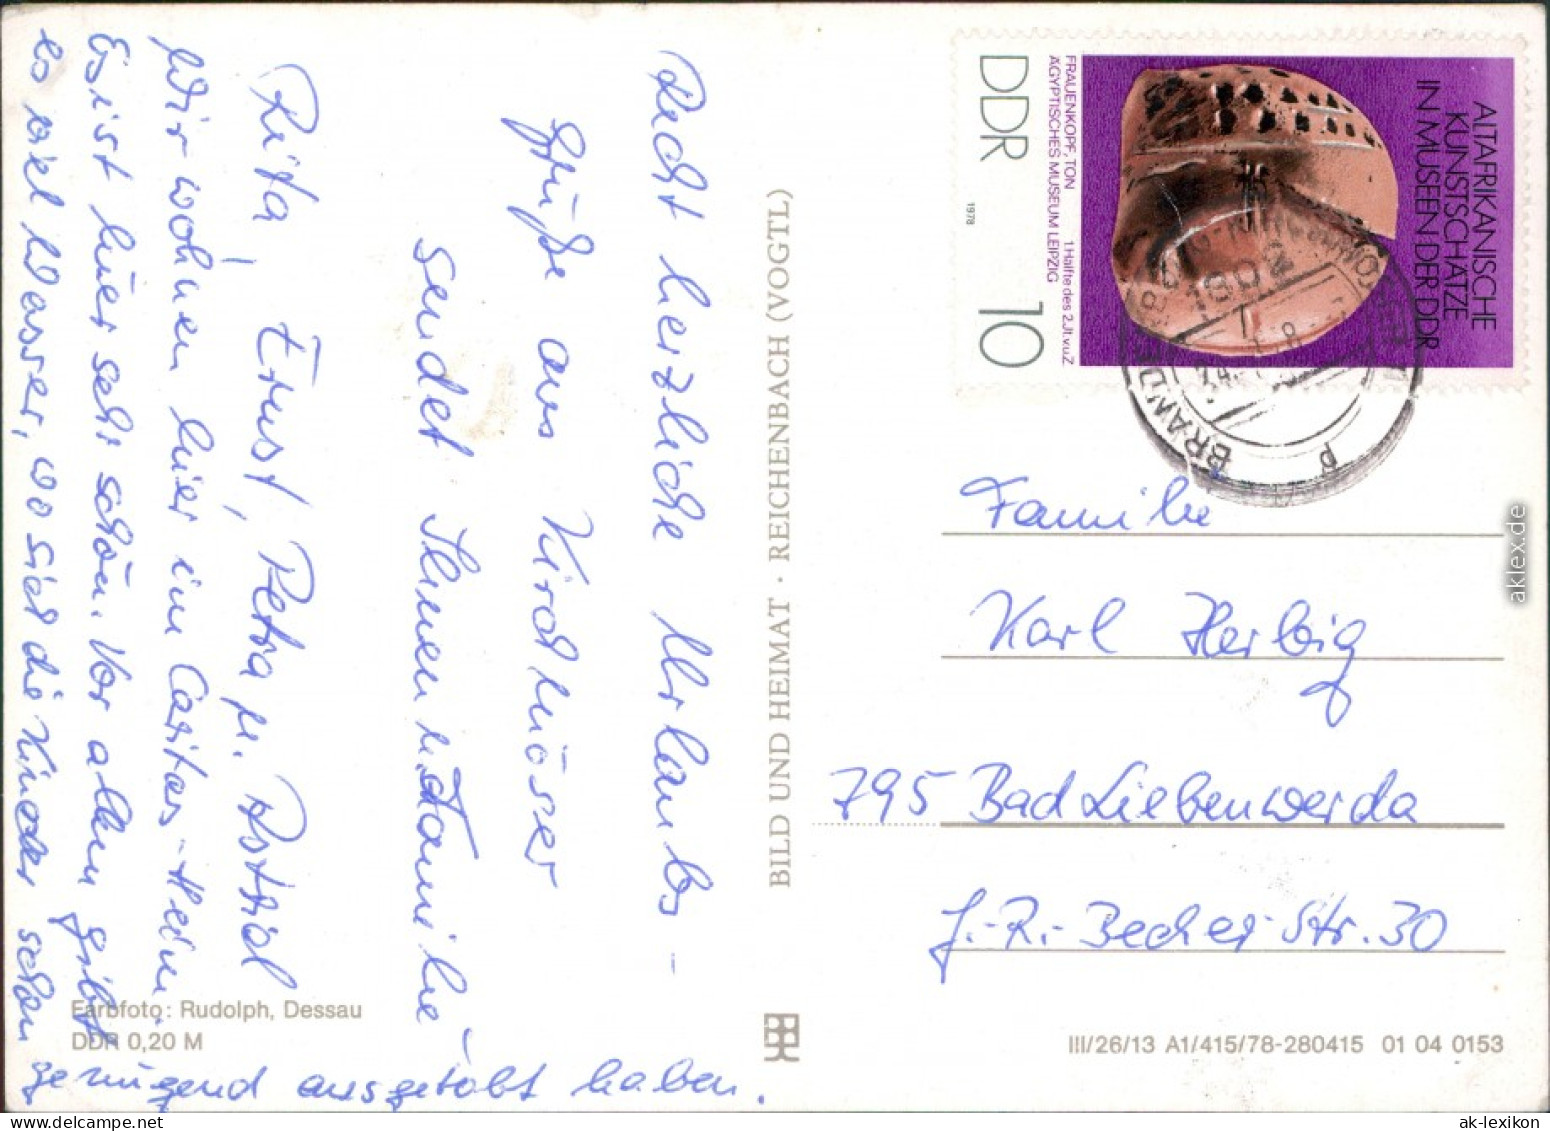 Recht herzliche Urlaubs-
grüße aus Kirchmöser
sendet Ihnen u. Familie
Rita, Ernst, Petra u.
Wir wohnen hier im Caritas-Heim.
Es ist hier sehr schön. Vor allem gibt
es viel Wasser, wo sich die Kinder schon
genügend ausgetobt haben.
Farbfoto: Rudolph, Dessau
DDR 0,20 M
BILD UND HEIMAT · REICHENBACH (VOGTL)
DDR
10
1978
FRAUENKOPF, TON 1. Hälfte des 2. Jt. v. u. Z.
ÄGYPTISCHES MUSEUM LEIPZIG
ALTAFRIKANISCHE
KUNSTSCHÄTZE
IN MUSEEN DER DDR
1802
Familie
Karl Herbig
795 Bad Liebenwerda
J.-R.-Becher-Str. 30
III/26/13 A1/415/78-280415 01 04 0153
aklex.de
ak-lexikon